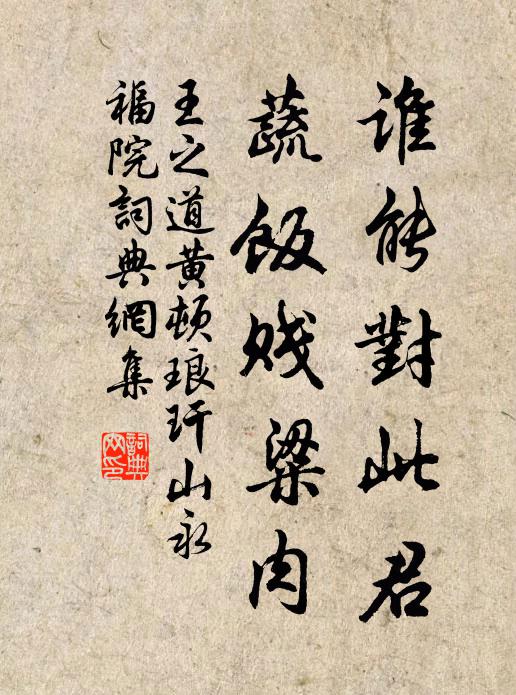 谁能對此君
蔬飯賤梁肉
王之道黄頓琅玕山永
福院詞典網集
詞典网印